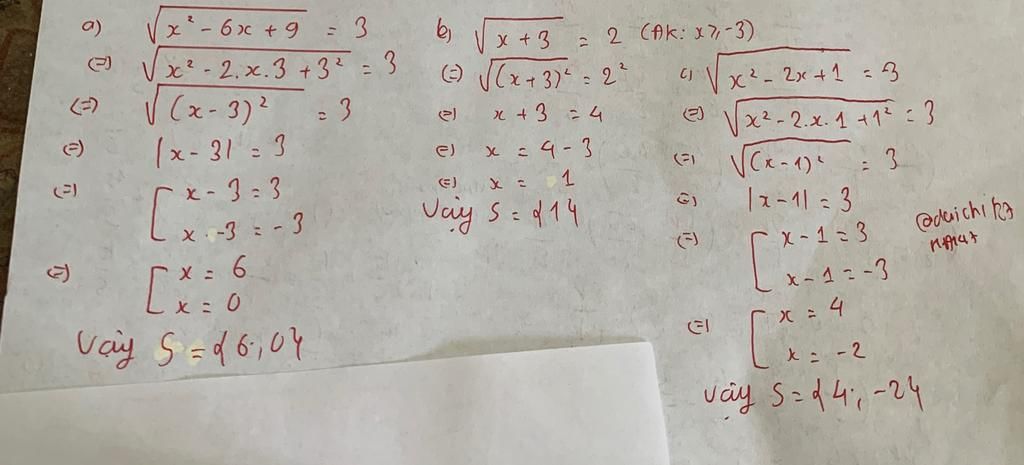 a) √(x² - 6x + 9) = 3
(=) √(x² - 2.x.3 + 3²) = 3
(=) √((x - 3)²) = 3
(=) |x - 3| = 3
(=) [ x - 3 = 3
x - 3 = -3
(=) [ x = 6
x = 0
Vậy S = {6;0}
b, √(x + 3) = 2 (ĐK: x ≥ -3)
(=) √((x + 3)²) = 2²
(=) x + 3 = 4
(=) x = 4 - 3
(=) x = 1
Vậy S = {1}
c) √(x² - 2x + 1) = 3
(=) √(x² - 2.x.1 + 1²) = 3
(=) √((x - 1)²) = 3
(=) |x - 1| = 3
(=) [ x - 1 = 3
x - 1 = -3
(=) [ x = 4
x = -2
Vậy S = {4; -2}